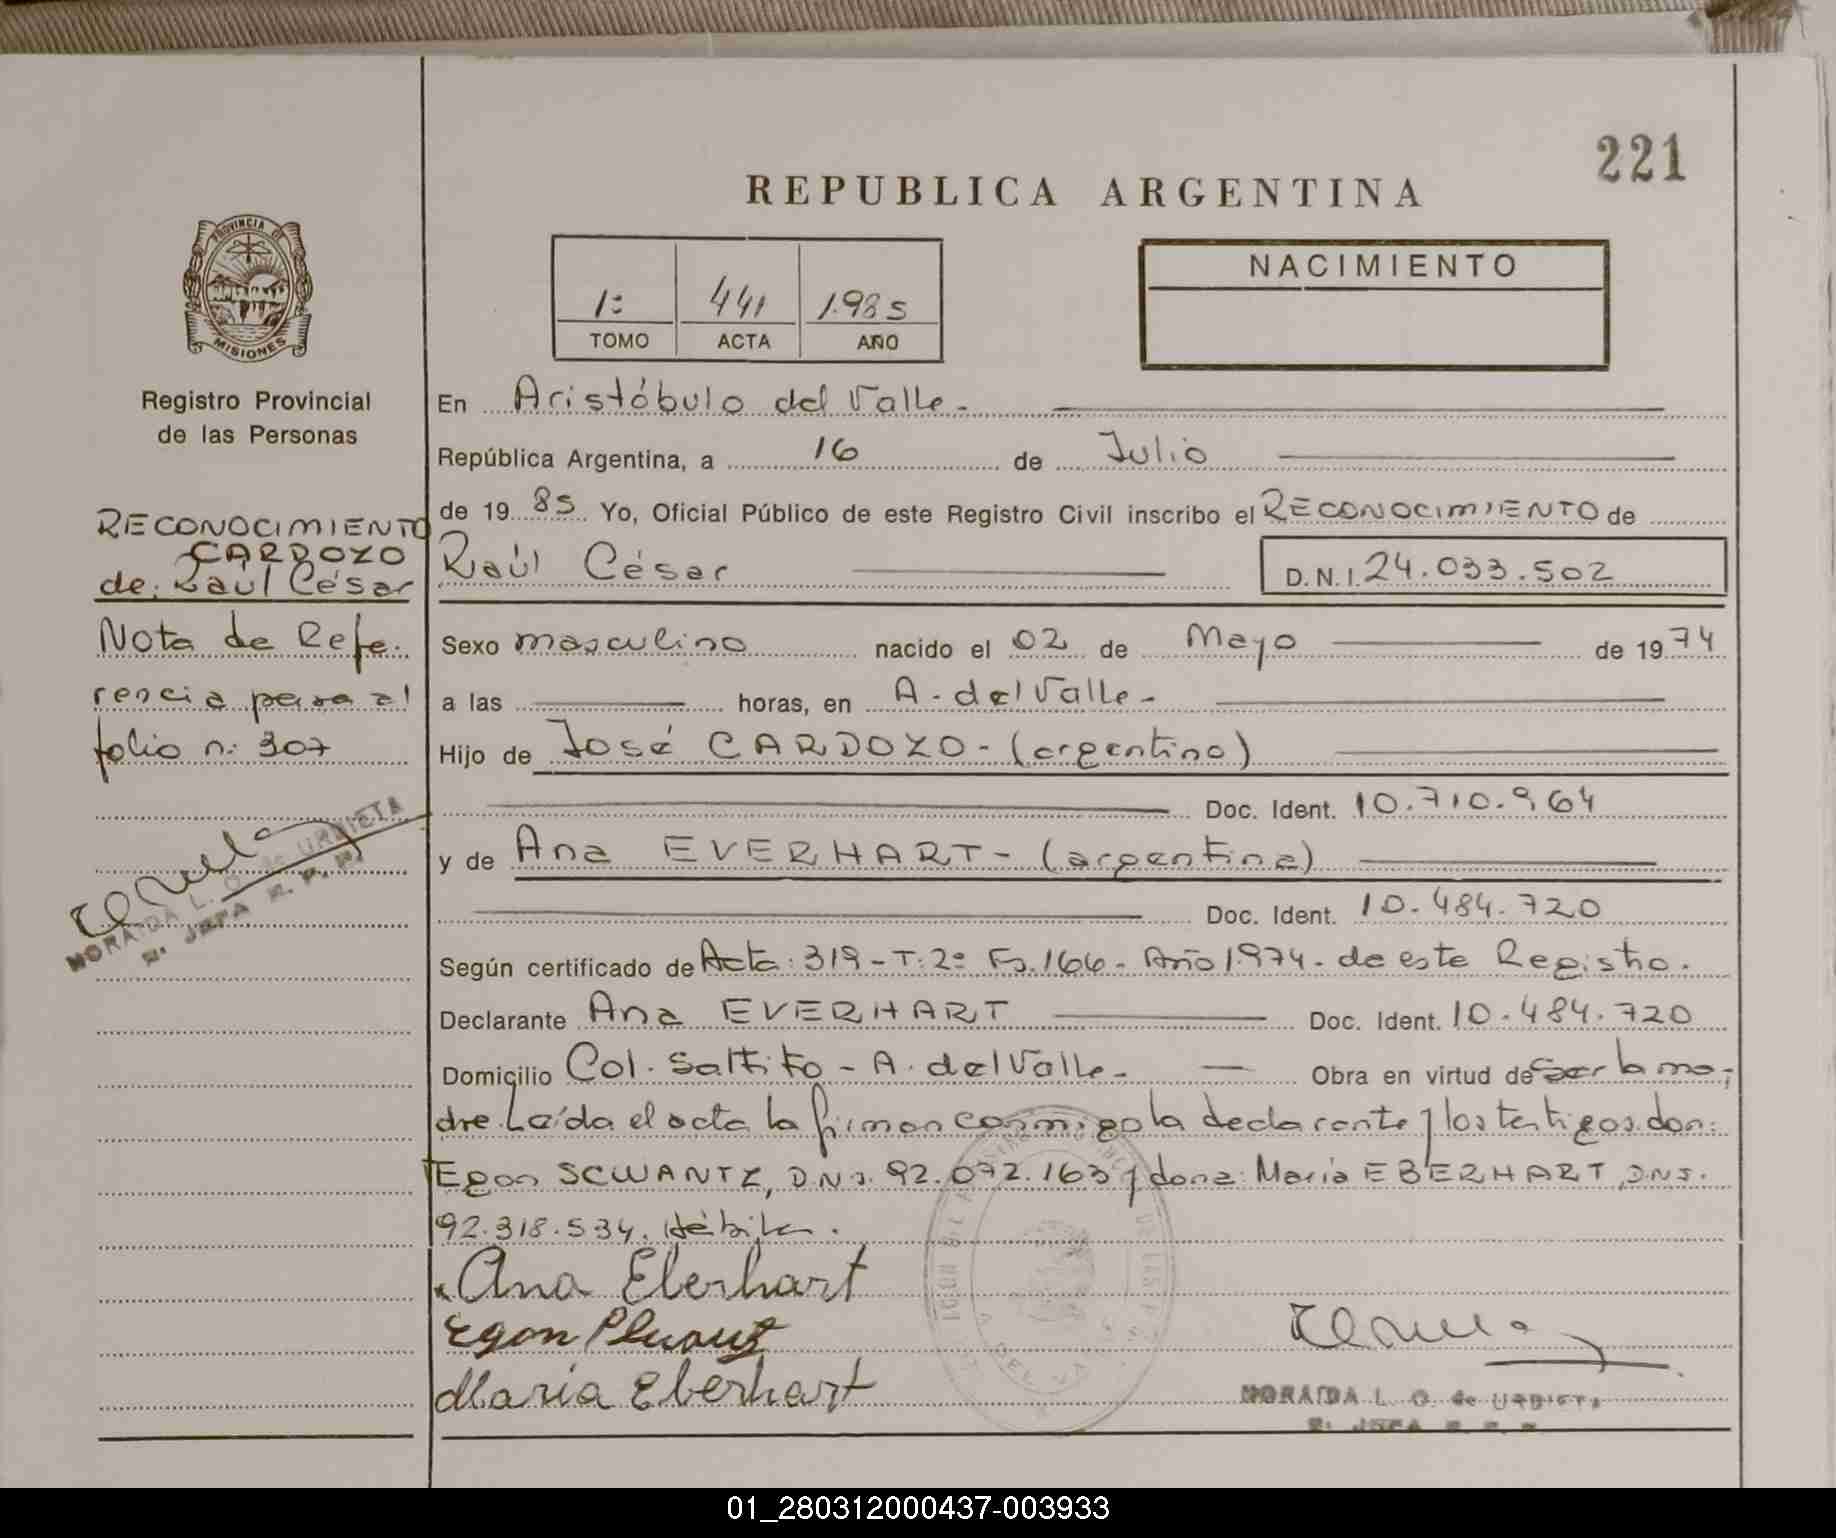 221
REPUBLICA ARGENTINA
PROVINCIA DE
MISIONES
Registro Provincial
de las Personas
1º 441 1.985
TOMO ACTA AÑO
NACIMIENTO
En Aristóbulo del Valle.-
República Argentina, a 16 de Julio
de 1985 Yo, Oficial Público de este Registro Civil inscribo el RECONOCIMIENTO de
Raúl César D.N.I. 24.033.502
Sexo masculino nacido el 02 de Mayo de 1974
a las horas, en A. del Valle-
Hijo de José CARDOZO-(argentino)
Doc. Ident. 10.710.964
y de Ana EVERHART-(argentina)
Doc. Ident. 10.484.720
Según certificado de Acta: 319-T:2º Fs.166- Año 1974- de este Registro.
Declarante Ana EVERHART Doc. Ident. 10.484.720
Domicilio Col. Saltito - A. del Valle- Obra en virtud de ser la ma-
dre. Leída el acta la firman conmigo la declarante y los testigos don:
Egon SCWANTZ, DNI. 92.072.163 y doña: María EBERHART, DNI.
92.318.534.
Ana Eberhart
Egon
Maria Eberhart
NORAIDA L. O. de URBIETA
JEFA R. P. P.
RECONOCIMIENTO
CARDOZO
de: Raúl César
Nota de Refe-
rencia pasa al
folio n: 307
NORAIDA L. O. de URBIETA
JEFA R. P. P.
01_280312000437-003933